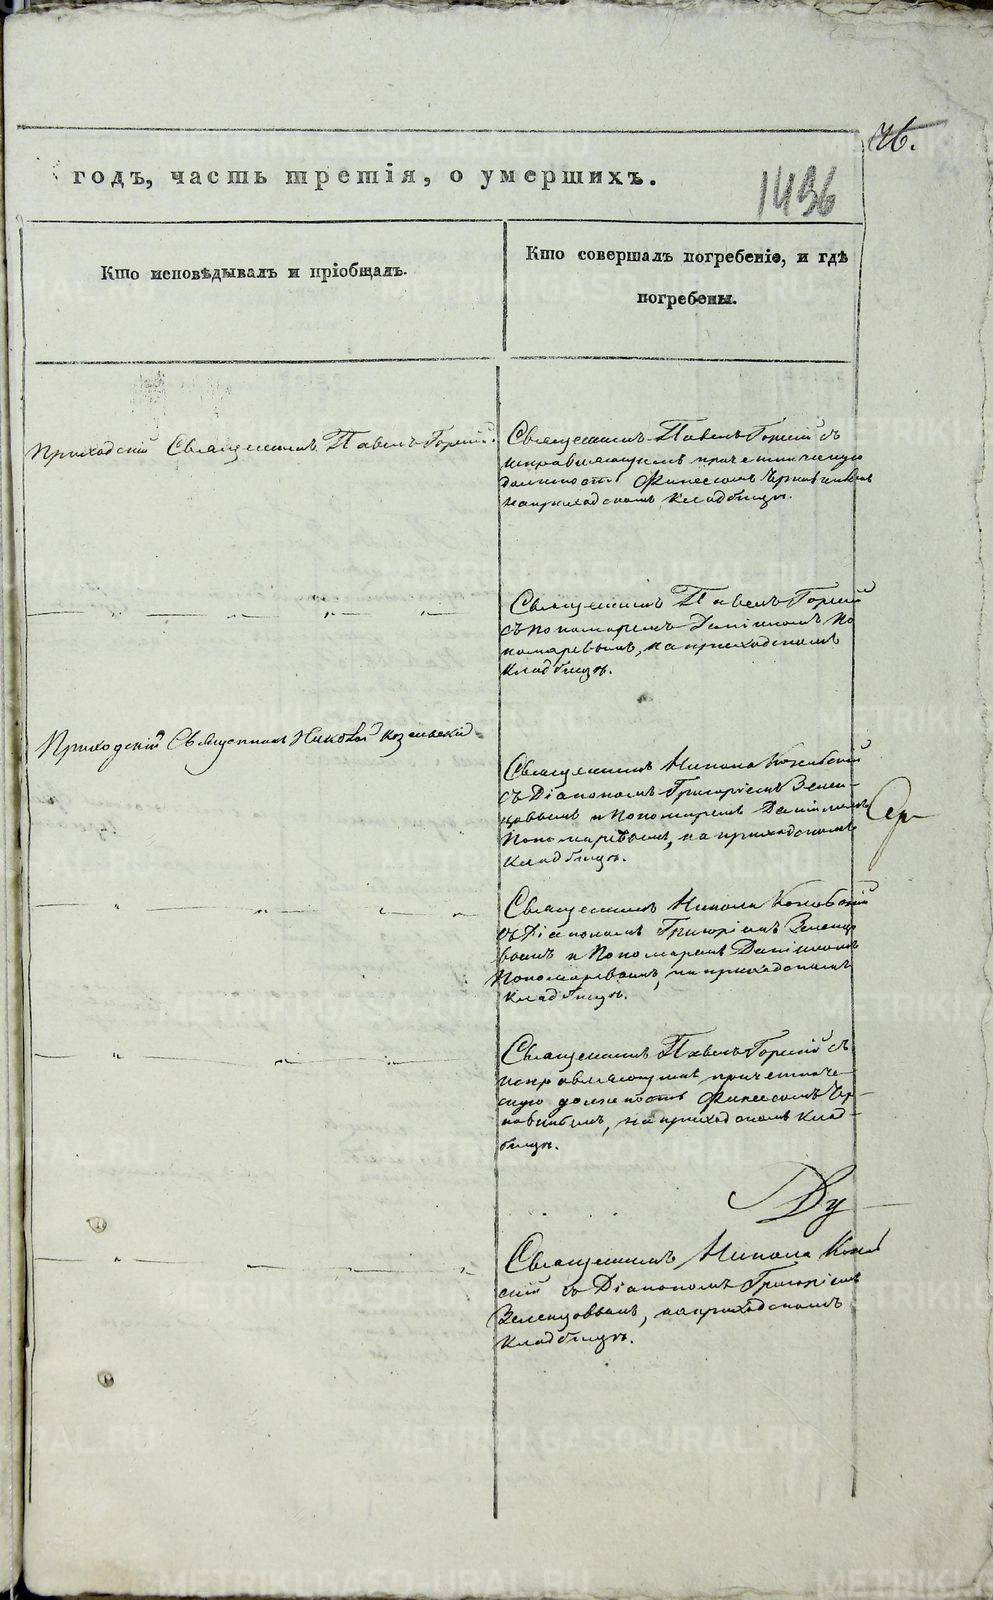 76.
годъ, часть третія, о умершихъ.
1436
Кто исповѣдывалъ и пріобщалъ.
Кто совершалъ погребеніе, и гдѣ
погребены.
Приходскій Священникъ Павелъ Горный.
Священникъ Павелъ Горный съ
исправляющимъ причетническую
должность Финеесомъ
на приходскомъ кладбищѣ.
Священникъ Павелъ Горный
съ пономаремъ Даніиломъ По
номаревымъ, на приходскомъ
кладбищѣ.
Приходскій Священникъ Николай
Священникъ Никола
съ Діакономъ Григоріемъ Зелен-
цовымъ и Пономаремъ Даніиломъ
Пономаревымъ, на приходскомъ
кладбищѣ.
Священникъ Никола
съ Діакономъ Григоріемъ Зеленцо
вымъ и Пономаремъ Даніиломъ
Пономаревымъ, на приходскомъ
кладбищѣ.
Священникъ Павелъ Горный съ
исправляющимъ причетниче-
скую должность Финеесомъ
на приходскомъ клад-
бищѣ.
Ду
Священникъ Никола
скій съ Діакономъ Григоріемъ
Зеленцовымъ, на приходскомъ
кладбищѣ.
METRIKI.GASO-URAL.RU